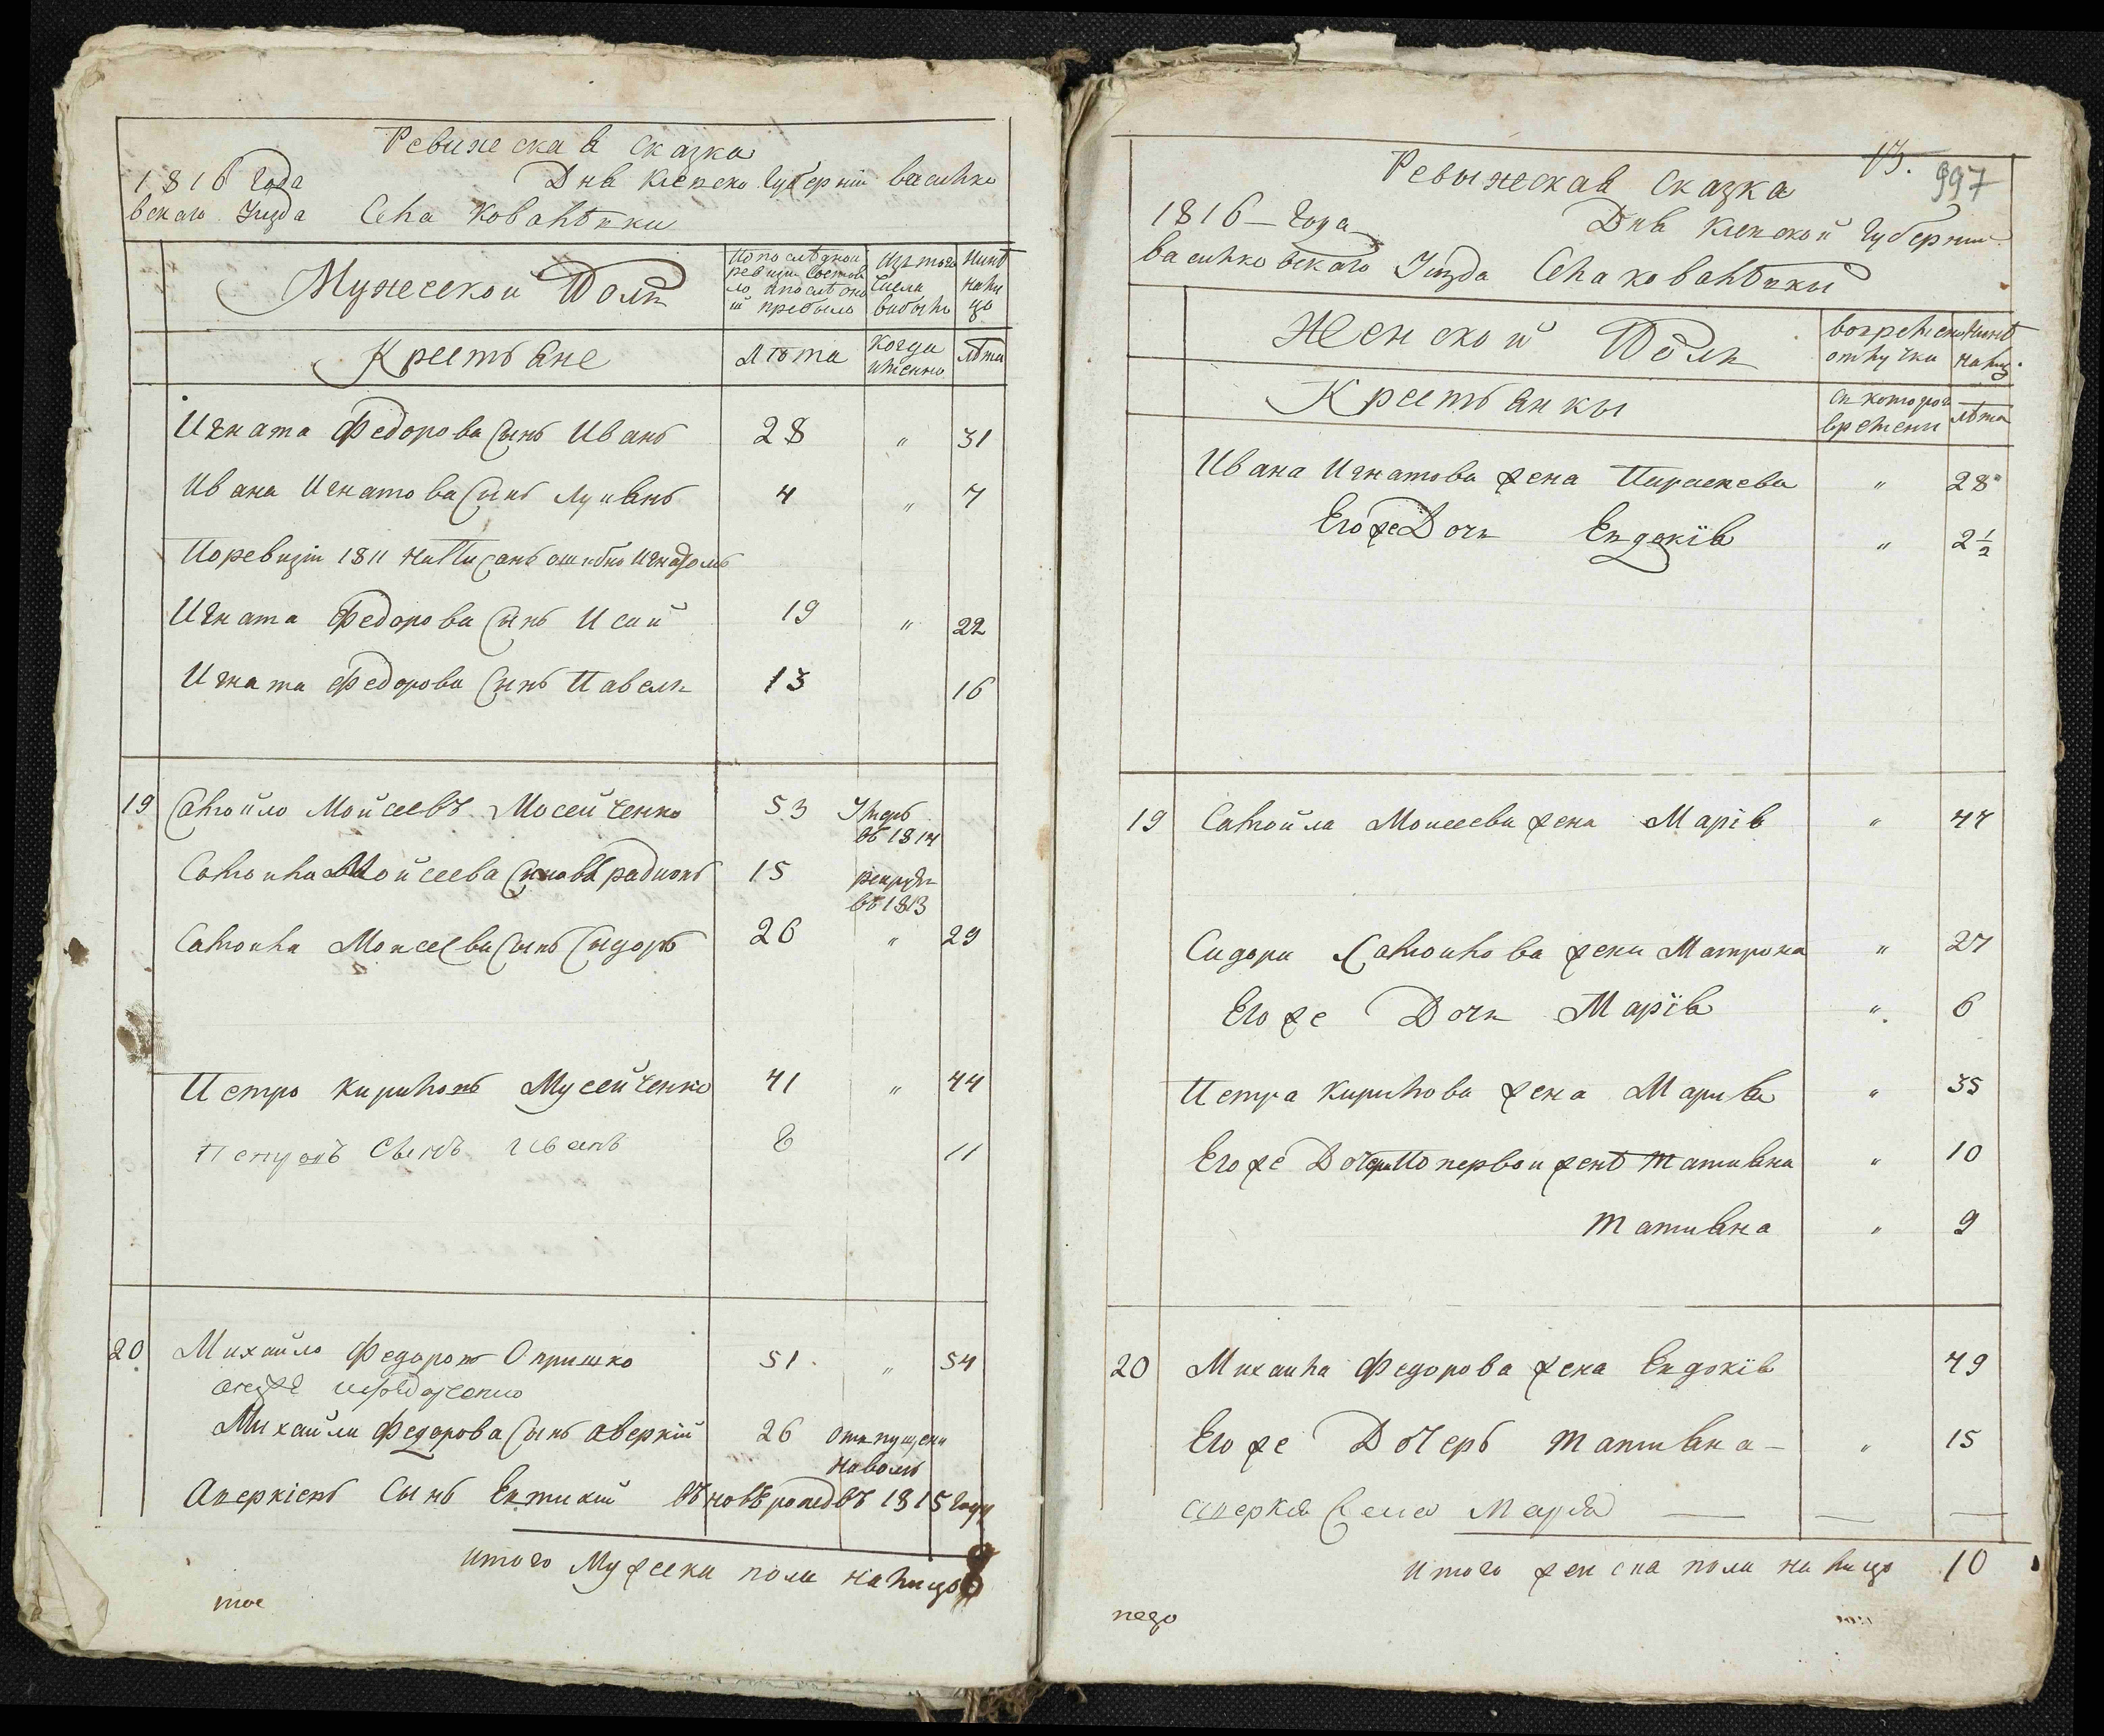 Ревижская сказка
1816 Года Дня Киевско Губернии василко
вского Уизда Села Ковалѣвки
Мужеской Полъ
По последной ревизии состояло и после оной прибыло
Изъ того числа выбыло
Нинѣ налицо
Крестьяне
Лѣта
Когда именно
лѣта
Игната Федорова Сынъ Иванъ 28 " 31
Ивана Игнатова Сынъ Лукьянъ 4 " 7
По ревизіи 1811 написанъ ошибко Игнатомъ
Игната Федорова Сынъ Исай 19 " 22
Игната Федорова Сынъ Павелъ 13 16
19 Самойло Мойсеевъ Мосейченко 53 Умеръ
въ 1814
Самойла Мойсеева Сыновъ радионъ 15 рекрутъ
въ 1813
Самойла Моисеева Сынъ Сидоръ 26 " 29
Петро Кириловъ Мусейченко 41 " 44
Петровъ Сынъ Иванъ 8 11
20 Михайло Федоровъ Опришко 51 " 54
Михайли Федорова Сынъ аверкій 26 отпущенъ
наволю
Аверкіевъ Сынъ Евтихій въновѣ рожед въ 1815 Году
итого Мужеска пола налицо 8
тое
13. 997
Ревыжская Сказка
1816 - Года Дня Киевской Губернии
василковского Уизда Села ковалѣвкы
Женской Полъ
вовремен отлучки
Нинѣ налиц.
Крестьянкы
съ которог времени
лѣта
Ивана Игнатова жена Параскева " 28
Егоже Дочь Евдокія " 2 1/2
19 Самойла Моисеева жена Марія " 47
Сидора Самойлова жена Матрона " 27
Егоже Дочь Марія " 6
Петра Кирилова жена Мария " 35
Егоже Дочери По первой женѣ Татияна " 10
Татияна " 9
20 Михаила Федорова жена Евдокія 49
Егоже Дочерь Татияна - " 15
аверкія жена Марія — — —
Итого женска пола налицо 10
педо